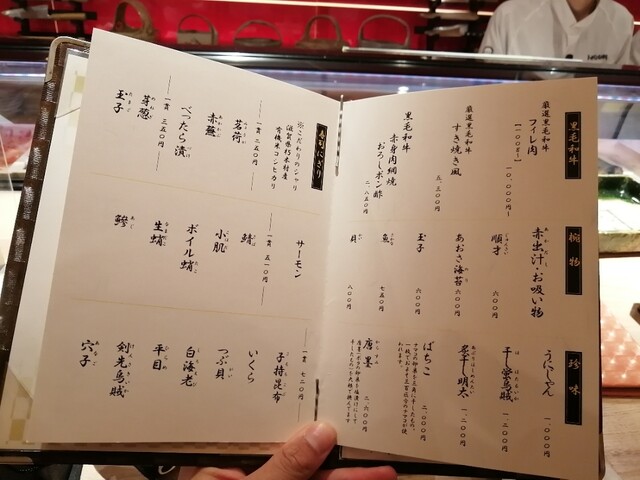 黒毛和牛
厳選黒毛和牛
フィレ肉
【一〇〇g】 一〇,〇〇〇円〜
厳選黒毛和牛
すき焼き風
五,五〇〇円
黒毛和牛
赤身肉網焼
おろしポン酢
二,八五〇円
椀物
赤出汁・お吸い物
順才 六〇〇円
あおさ海苔 六〇〇円
玉子 六〇〇円
魚 七五〇円
貝 八〇〇円
珍味
うにじゃん 一,〇〇〇円
干し蛍烏賊 一,二〇〇円
炙り明太 一,二〇〇円
ばちこ 二,〇〇〇円
唐墨 二,六〇〇円
寿司にぎり
※こだわりのシャリ
滋賀県朽木村産
有機米コシヒカリ
一貫 二五〇円
茗荷
赤蕪
べったら漬
一貫 三五〇円
芽葱
玉子
サーモン
一貫 五一〇円
鯖
小肌
ボイル蛸
生蛸
鯵
一貫 七二〇円
子持昆布
いくら
つぶ貝
白海老
平目
剣先烏賊
穴子